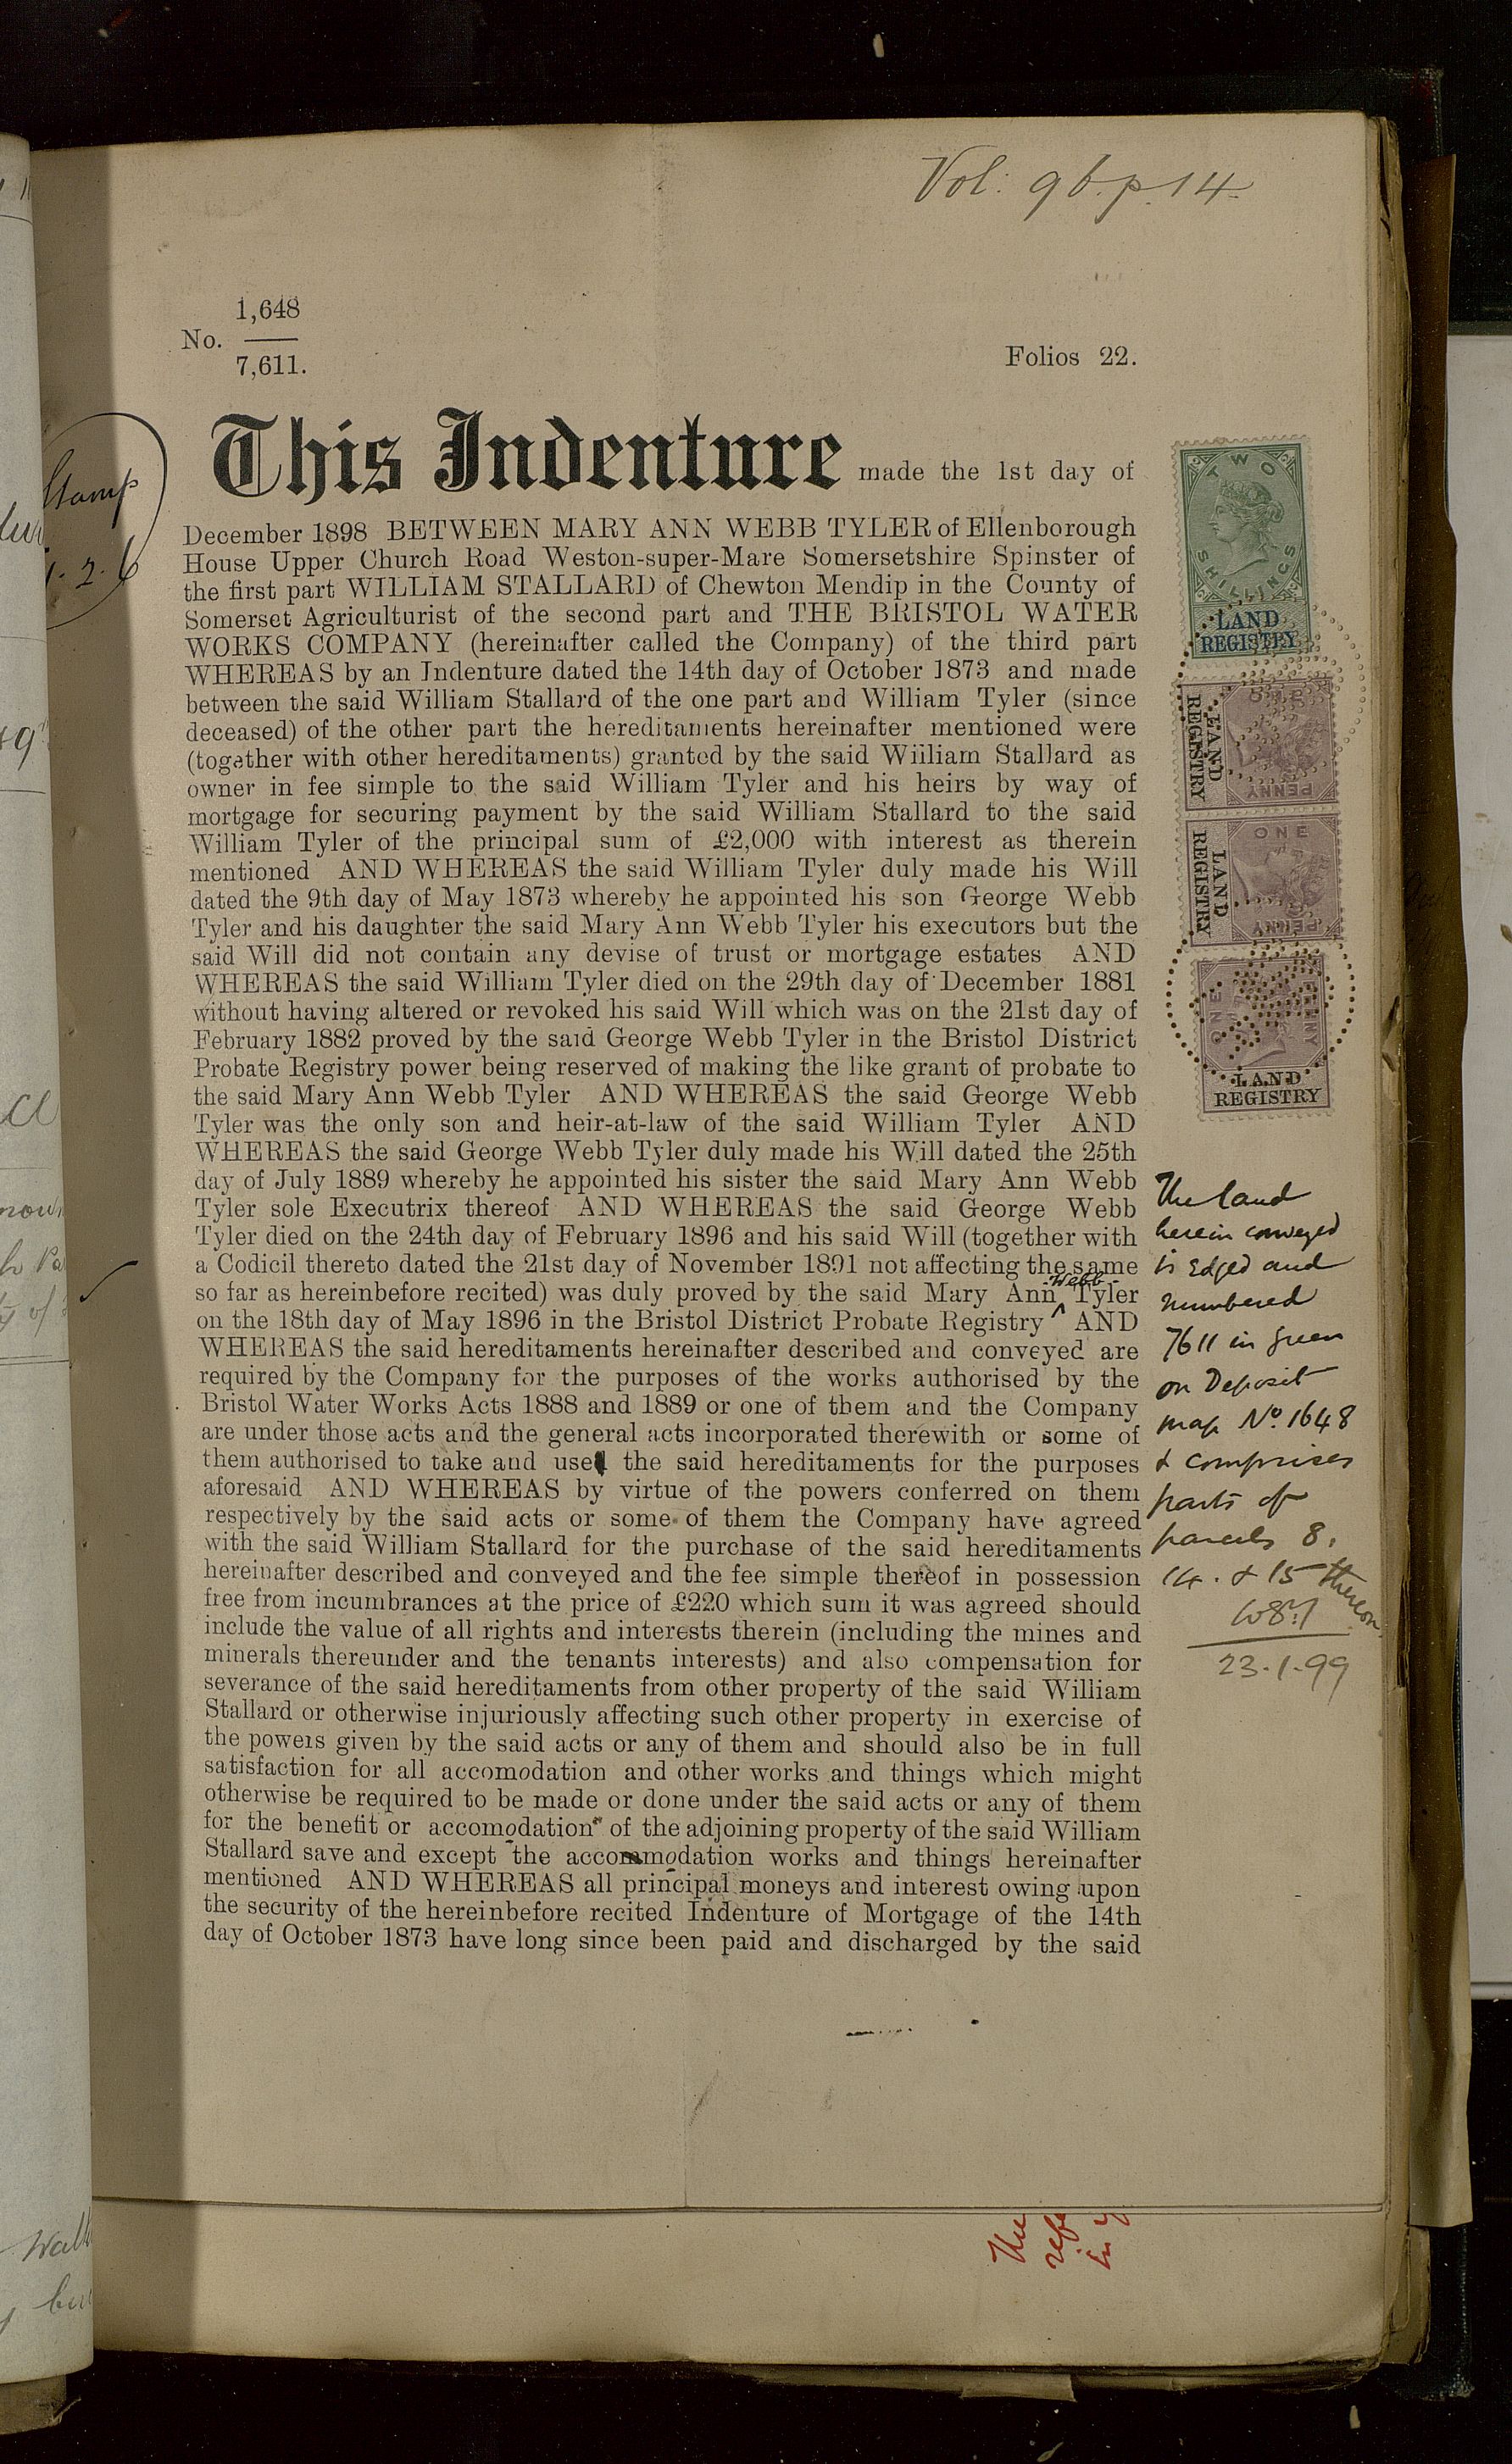 Vol: 96. p. 14
1,648
No.
7,611.
Folios 22.
This Indenture made the 1st day of
December 1898 BETWEEN MARY ANN WEBB TYLER of Ellenborough
House Upper Church Road Weston-super-Mare Somersetshire Spinster of
the first part WILLIAM STALLARD of Chewton Mendip in the County of
Somerset Agriculturist of the second part and THE BRISTOL WATER
WORKS COMPANY (hereinafter called the Company) of the third part
WHEREAS by an Indenture dated the 14th day of October 1873 and made
between the said William Stallard of the one part and William Tyler (since
deceased) of the other part the hereditaments hereinafter mentioned were
(together with other hereditaments) granted by the said Wiiliam Stallard as
owner in fee simple to the said William Tyler and his heirs by way of
mortgage for securing payment by the said William Stallard to the said
William Tyler of the principal sum of £2,000 with interest as therein
mentioned AND WHEREAS the said William Tyler duly made his Will
dated the 9th day of May 1873 whereby he appointed his son George Webb
Tyler and his daughter the said Mary Ann Webb Tyler his executors but the
said Will did not contain any devise of trust or mortgage estates AND
WHEREAS the said William Tyler died on the 29th day of December 1881
without having altered or revoked his said Will which was on the 21st day of
February 1882 proved by the said George Webb Tyler in the Bristol District
Probate Registry power being reserved of making the like grant of probate to
the said Mary Ann Webb Tyler AND WHEREAS the said George Webb
Tyler was the only son and heir-at-law of the said William Tyler AND
WHEREAS the said George Webb Tyler duly made his Will dated the 25th
day of July 1889 whereby he appointed his sister the said Mary Ann Webb
Tyler sole Executrix thereof AND WHEREAS the said George Webb
Tyler died on the 24th day of February 1896 and his said Will (together with
a Codicil thereto dated the 21st day of November 1891 not affecting the same
so far as hereinbefore recited) was duly proved by the said Mary Ann Webb Tyler
on the 18th day of May 1896 in the Bristol District Probate Registry AND
WHEREAS the said hereditaments hereinafter described and conveyed are
required by the Company for the purposes of the works authorised by the
Bristol Water Works Acts 1888 and 1889 or one of them and the Company
are under those acts and the general acts incorporated therewith or some of
them authorised to take and use the said hereditaments for the purposes
aforesaid AND WHEREAS by virtue of the powers conferred on them
respectively by the said acts or some of them the Company have agreed
with the said William Stallard for the purchase of the said hereditaments
hereinafter described and conveyed and the fee simple thereof in possession
free from incumbrances at the price of £220 which sum it was agreed should
include the value of all rights and interests therein (including the mines and
minerals thereunder and the tenants interests) and also compensation for
severance of the said hereditaments from other property of the said William
Stallard or otherwise injuriously affecting such other property in exercise of
the powers given by the said acts or any of them and should also be in full
satisfaction for all accomodation and other works and things which might
otherwise be required to be made or done under the said acts or any of them
for the benefit or accomodation of the adjoining property of the said William
Stallard save and except the accommodation works and things hereinafter
mentioned AND WHEREAS all principal moneys and interest owing upon
the security of the hereinbefore recited Indenture of Mortgage of the 14th
day of October 1873 have long since been paid and discharged by the said
TWO
SHILLINGS
LAND
REGISTRY
PENNY
LAND
REGISTRY
ONE
PENNY
LAND
REGISTRY
ONE
PENNY
LAND
REGISTRY
The land
herein conveyed
is Edged and
numbered
7611 in green
on Deposit
map No. 1648
& comprises
parts of
parcels 8.
14. & 15 thereon.
23.1.99
Stamp
1.2.6